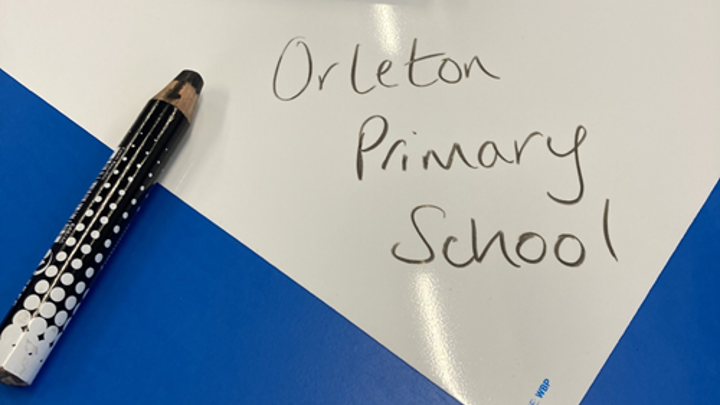 Orleton
Primary
School
WBP